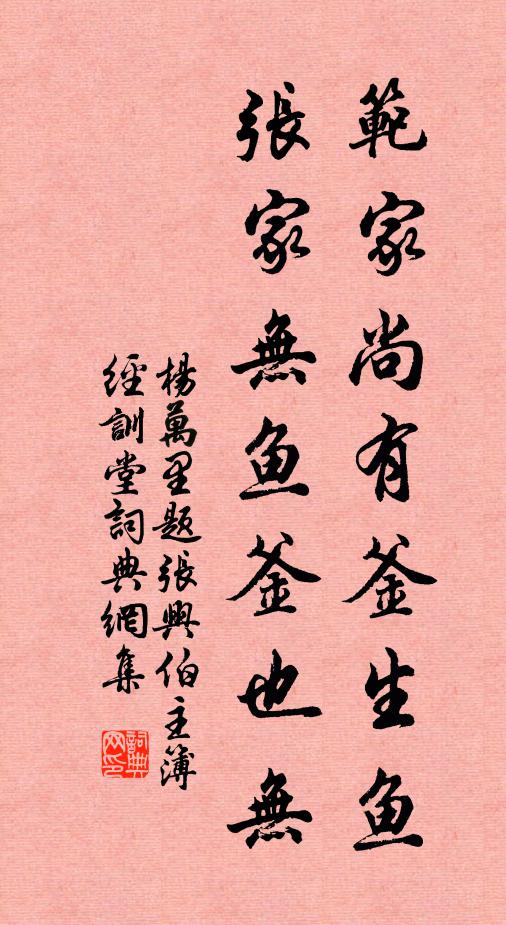 範家尚有釜生鱼
張家無鱼釜也無
楊萬里题張興伯主簿
經訓堂詞典網集
詞典網印